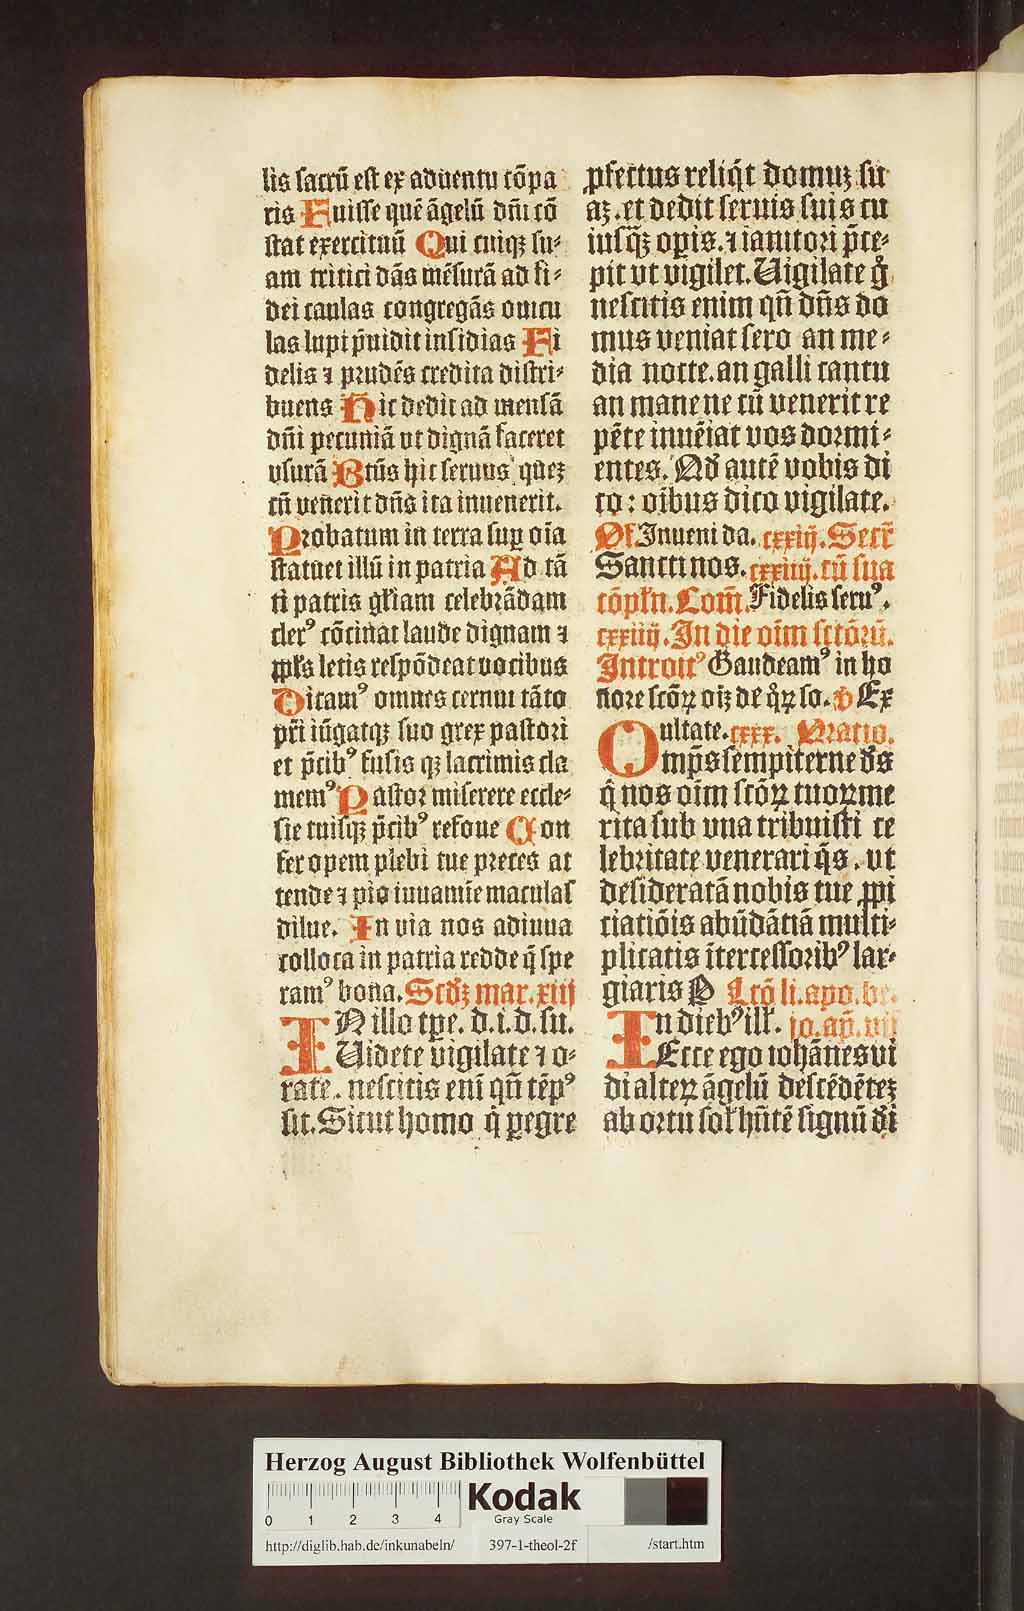 lis sacrū est ex aduentu cōpa
ris Fuisse quē āgelū dn̄i cō
stat exercituū Qui cuiqꝫ su⸗
am tritici dās mēsurā ad fi⸗
dei caulas congregās ouicu
las lupi p̄uidit insidias Fi
delis ⁊ prudēs credita distri⸗
buens Hic dedit ad mensā
dn̄i pecuniā vt dignā faceret
vsurā Btūs hic seruus quez
cū venerit dn̄s ita inuenerit.
Probatum in terra suꝑ oīa
statuet illū in patria Ad tā
ti patris gl̄iam celebrādam
clerꝰ cōcinat laude dignam ⁊
ppl̄s letis respōdeat vocibus
Dicamꝰ omnes cernui tāto
pr̄i iūgatqꝫ suo grex pastori
et p̄cibꝰ fusis qꝫ lacrimis cla
memꝰ Pastor miserere eccle⸗
sie tuisqꝫ p̄cibꝰ refoue Con
fer opem plebi tue preces at
tende ⁊ pio iuuamīe maculas
dilue. In via nos adiuua
colloca in patria redde q̄ spe
ramꝰ bona. Scdꝫ mar. xiij
IN illo tꝑe. d. i. d. su.
Uidete vigilate ⁊ o⸗
rate. nescitis enī qn̄ tēpꝰ
sit. Sicut homo q̇ ꝑegre
ꝓfectus reliq̇t domuꝫ su
aꝫ. et dedit seruis suis cu
iusqꝫ oꝑis. ⁊ ianitori p̄ce⸗
pit vt vigilet. Uigilate g̊
nescitis enim qn̄ dn̄s do
mus veniat sero an me⸗
dia nocte. an galli cantu
an mane ne cū venerit re
pēte inuēiat vos dormi⸗
entes. Qd̄ autē vobis di
co: oībus dico vigilate.
Of. Inueni da. cxxiij. Secr̄
Sancti nos. cxxiiij. cū sua
cōpl̄n. Com̄. Fidelis seruꝰ.
cxxiiij. In die oīm sctōrū.
Introitꝰ Gaudeamꝰ in ho
nore scōꝝ oīꝫ de q̊ꝝ so. v̄ Ex
ultate. cxxx. Oratio.
Omp̄s sempiterne d̄s
q̇ nos oīm scōꝝ tuoꝝ me
rita sub vna tribuisti ce
lebritate venerari q̄s. vt
desideratā nobis tue ꝓpi
ciatiōis abūdātiā multi⸗
plicatis ītercessoribꝰ lar⸗
giaris P Lcō li. apo. be.
In diebꝰ ill̄. io. ap̄. vij
Ecce ego iohānes vi
di alteꝝ āgelū descēdētez
ab ortu sol̄ hn̄tē signū di
Herzog August Bibliothek Wolfenbüttel
0 1 2 3 4
Kodak
Gray Scale
http://diglib.hab.de/inkunabeln/ 397-1-theol-2f /start.htm